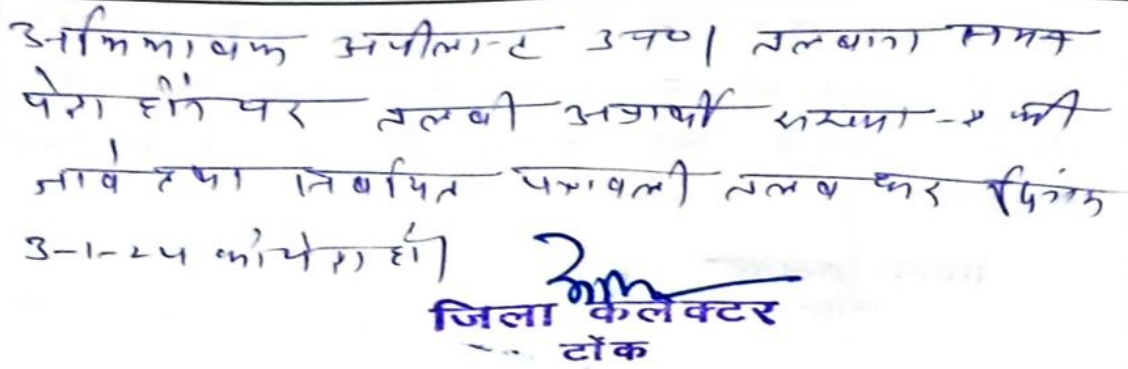 अभिभावक अपीलान्ट उप०। तलबाना समय
पेश होने पर तलबी अप्रार्थी संख्या-२ की
जावे तथा निर्णित पत्रावली तलब कर दिनांक
3-1-24 को पेश हो।
जिला कलेक्टर
टोंक